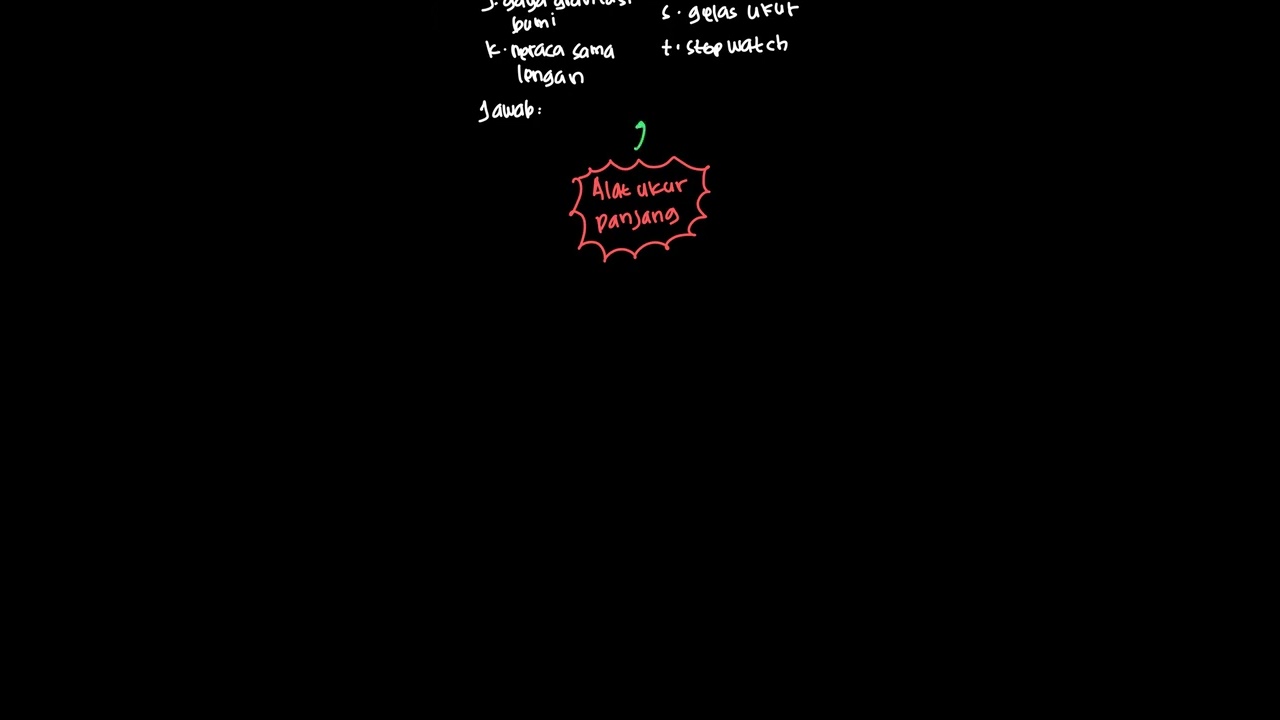 J. gaya gravitasi
bumi
k. neraca sama
lengan
s. gelas ukur
t. stopwatch
Jawab:
Alat ukur
panjang